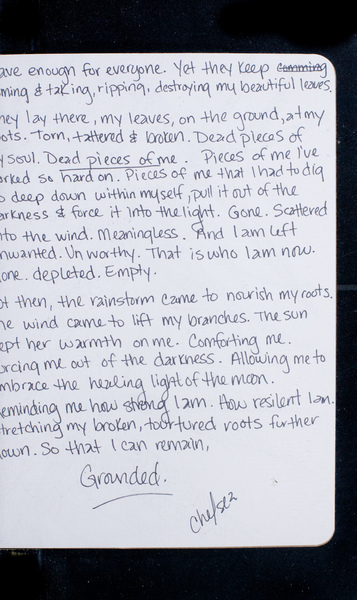 ave enough for everyone. Yet they keep comming
ming & taking, ripping, destroying my beautiful leaves.
hey lay there, my leaves, on the ground, at my
ots. Torn, tattered & broken. Dead pieces of
y soul. Dead pieces of me. Pieces of me I've
orked so hard on. Pieces of me that I had to dig
o deep down within myself, pull it out of the
arkness & force it into the light. Gone. Scattered
nto the wind. Meaningless. And I am left
nwanted. Unworthy. That is who I am now.
one. depleted. Empty.
ot then, the rainstorm came to nourish my roots.
he wind came to lift my branches. The sun
ept her warmth on me. Comforting me.
orcing me out of the darkness. Allowing me to
mbrace the healing light of the moon.
eminding me how strong I am. How resilent I am.
tretching my broken, tourtured roots further
own. So that I can remain,
Grounded.